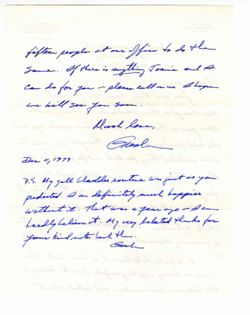 fifteen people at our office to do the
same. If there is anything Tonia and I
can do for you – please call me. I hope
we will see you soon.
Much love,
Dec 11, 1977
P.S. My gall bladder routine was just as you
predicted. I am definitely much happier
without it. That was a year ago – I can
hardly believe it. My very belated thanks for
your kind note back then.